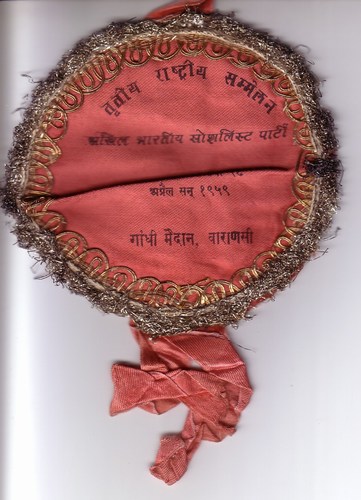 तृतीय राष्ट्रीय सम्मेलन
अखिल भारतीय सोशलिस्ट पार्टी
अप्रैल सन् १९५९
गांधी मैदान, वाराणसी